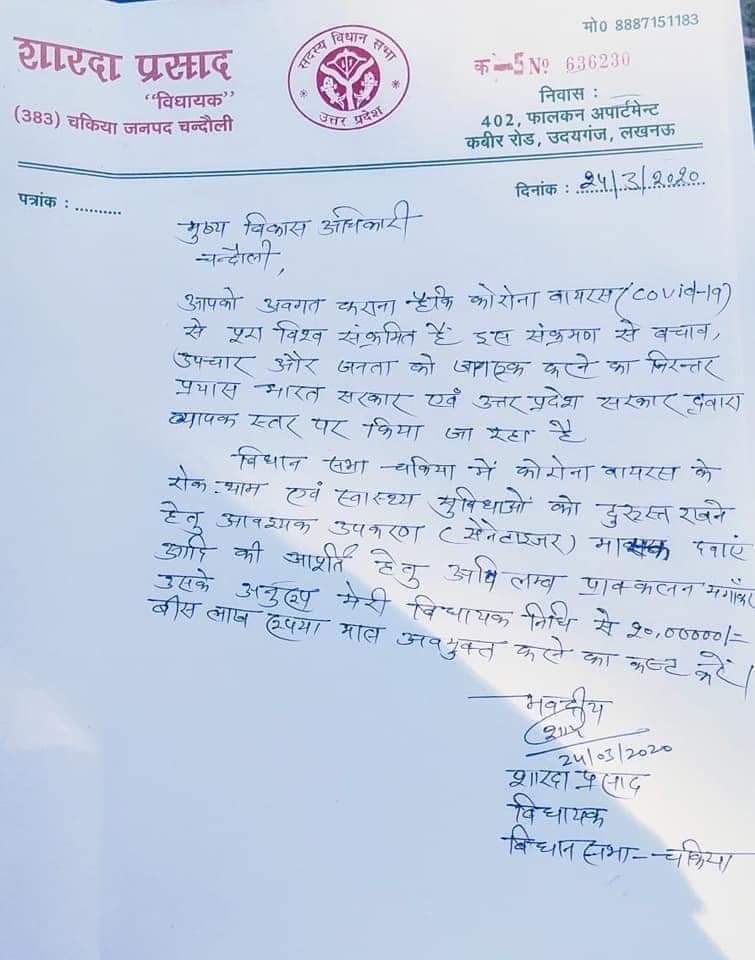 मो0 8887151183
शारदा प्रसाद
"विधायक"
(383) चकिया जनपद चन्दौली
सदस्य विधान सभा
उत्तर प्रदेश
क-5 № 636230
निवास :
402, फालकन अपार्टमेन्ट
कबीर रोड, उदयगंज, लखनऊ
पत्रांक : ..........
दिनांक : 24/3/2020
मुख्य विकास अधिकारी
चन्दौली,
आपको अवगत कराना है कि कोरोना वायरस (COVID-19)
से पूरा विश्व संक्रमित है इस संक्रमण से बचाव,
उपचार और जनता को जागरुक करने का निरन्तर
प्रयास भारत सरकार एवं उत्तर प्रदेश सरकार द्वारा
व्यापक स्तर पर किया जा रहा है
विधान सभा चकिया में कोरोना वायरस के
रोक-थाम एवं स्वास्थ्य सुविधाओं को दुरुस्त रखने
हेतु आवश्यक उपकरण (सेनेटाइजर) मास्क दवाएं
आदि की आपूर्ति हेतु अविलम्ब प्राक्कलन मगाँकर
उसके अनुरूप मेरी विधायक निधि से 20,00000/-
बीस लाख रुपया मात्र अवमुक्त करने का कष्ट करें।
भवदीय
24/03/2020
शारदा प्रसाद
विधायक
विधान सभा - चकिया